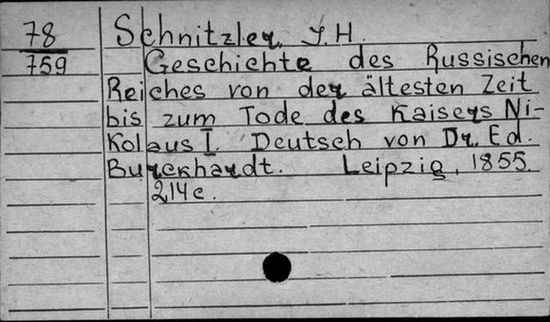 78 Schnitzler, J. H.
759 Geschichte des Russischen
Reiches von der ältesten Zeit
bis zum Tode des Kaisers Ni-
kolaus I. Deutsch von Dr. Ed.
Burckhardt. Leipzig, 1855.
214 c.